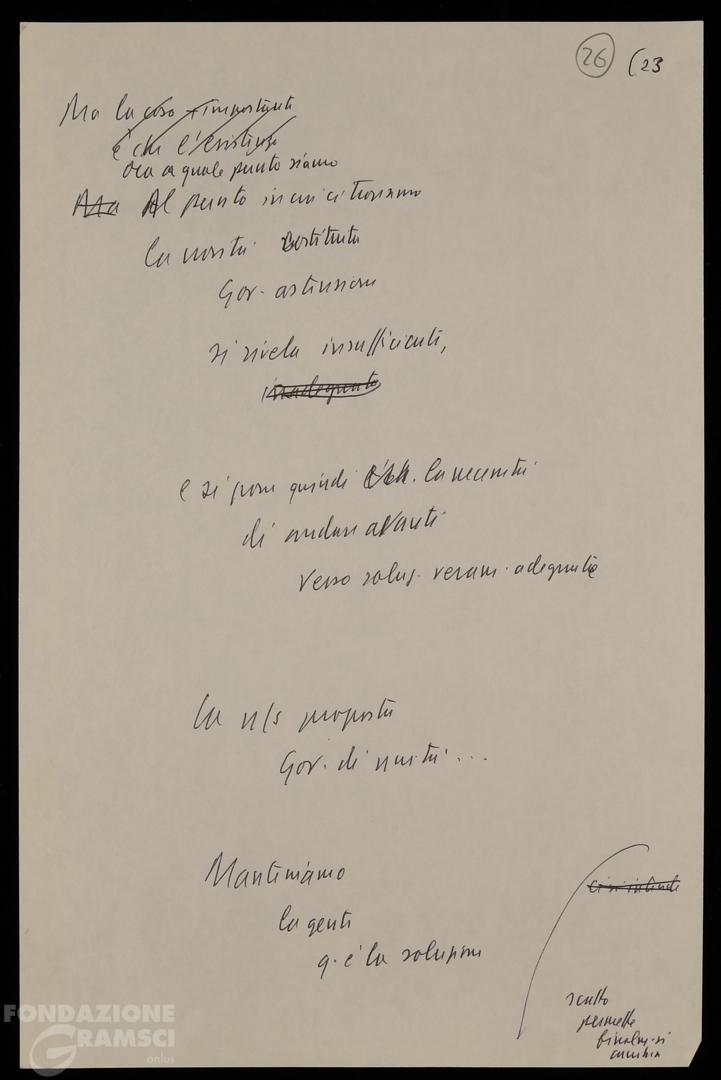 26 (23
Ma la cosa + importante
è che l'esistenza
ora a quale punto siamo
Ma Al punto in cui ci troviamo
la novità costituita
Gov. astensioni
si rivela insufficiente,
inadeguata
e si pone quindi la necessità
di andare avanti
verso soluz. veram. adeguate
La n/s proposta
Gov. di unità...
Manteniamo
la gente
q. è la soluzione
ci si intende
scatto
permette
finalm. si
cambia
FONDAZIONE
GRAMSCI
onlus